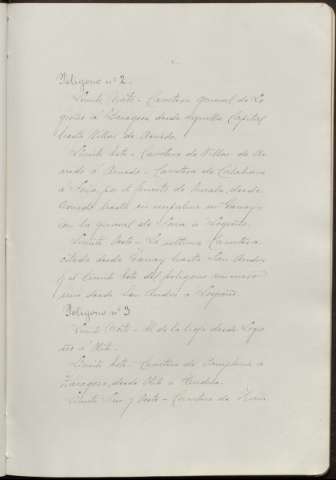 Poligono nº 2.
Limite Norte - Carretera general de Lo-
groño a Zaragoza desde aquella Capital
hasta Villar de Arnedo.
Limite Este - Carretera de Villar de Ar-
nedo a Arnedo - Carretera de Calahorra
a Soria, por el puente de desde
Arnedo hasta su empalme en Garray
con la general de Soria a Logroño.
Limite Oeste - La ultima Carretera
citada desde Garray hasta San Andres
y el limite Este del poligono numero
uno desde San Andres a Logroño.
Poligono nº 3
Limite Norte - de la linea desde Logro-
ño a
Limite Este - Carretera de Pamplona a
Zaragoza, desde a Tudela.
Limite Sur y Oeste - Carretera de